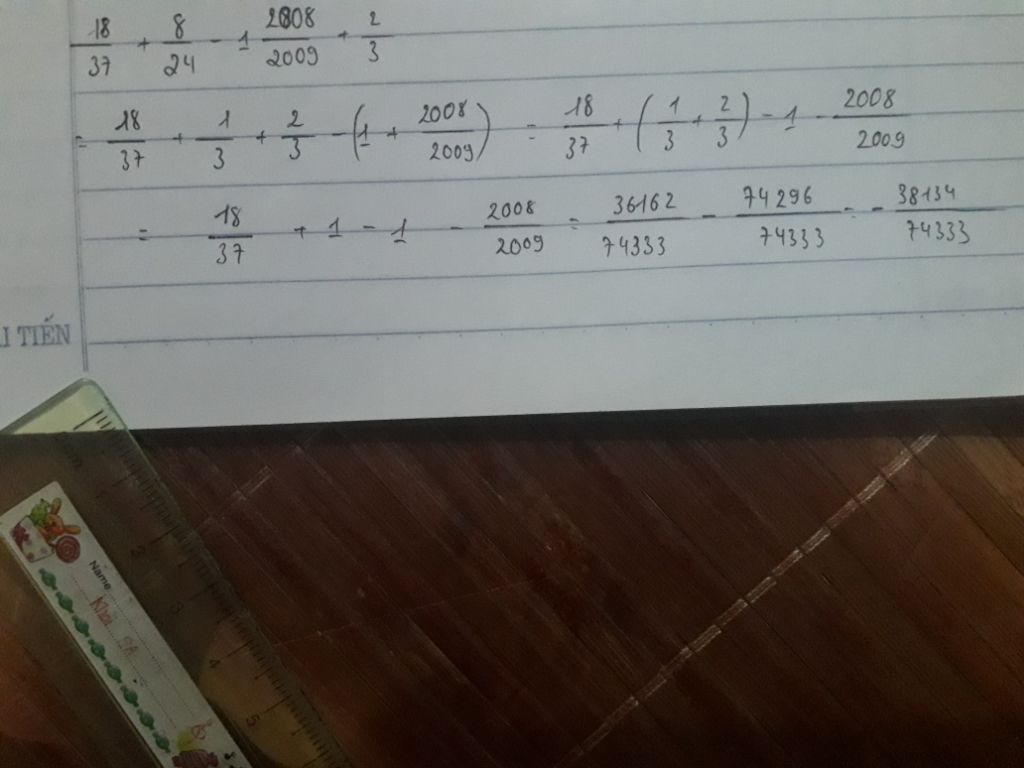 18/37 + 8/24 - 1 2008/2009 + 2/3
= 18/37 + 1/3 + 2/3 - (1 + 2008/2009) = 18/37 + (1/3 + 2/3) - 1 - 2008/2009
= 18/37 + 1 - 1 - 2008/2009 = 36162/74333 - 74296/74333 = - 38134/74333
TIẾN
Name
2
3
4
5